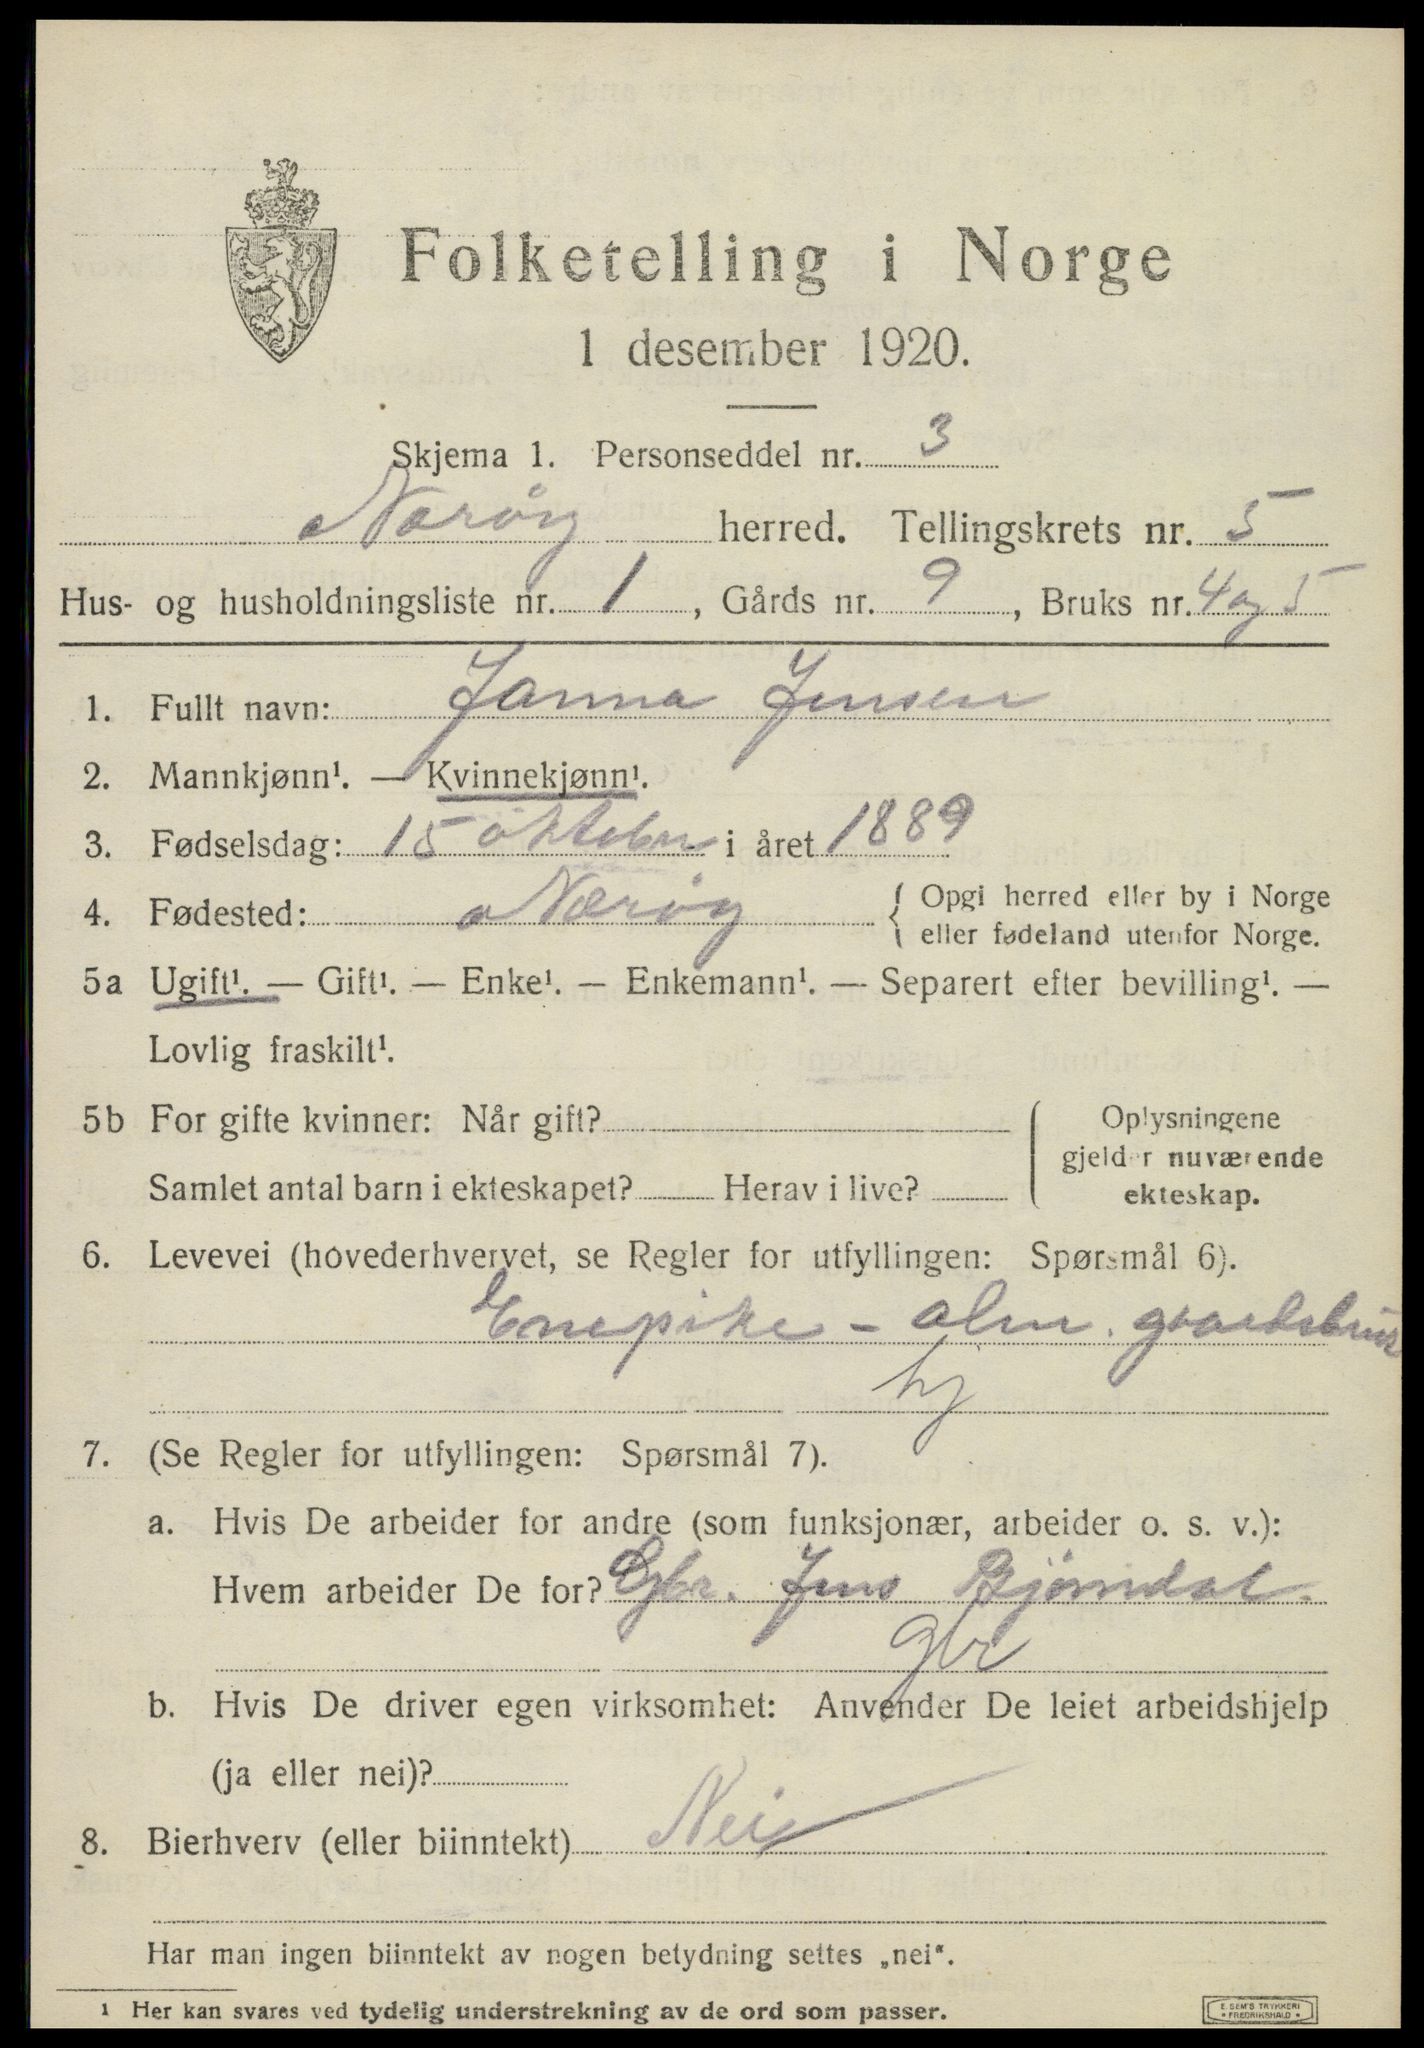 Folketelling i Norge
1 desember 1920.
Skjema 1. Personseddel nr. 3
Nærøy herred. Tellingskrets nr. 5
Hus- og husholdningsliste nr. 1, Gårds nr. 9, Bruks nr. 4 og 5
1. Fullt navn: Janna Jensen
2. Mannkjønn¹. — Kvinnekjønn¹.
3. Fødselsdag: 15 oktober i året 1889
4. Fødested: Nærøy { Opgi herred eller by i Norge
eller fødeland utenfor Norge.
5a Ugift¹. — Gift¹. — Enke¹. — Enkemann¹. — Separert efter bevilling¹. —
Lovlig fraskilt¹.
5b For gifte kvinner: Når gift?
Samlet antal barn i ekteskapet? Herav i live?
Oplysningene
gjelder nuværende
ekteskap.
6. Levevei (hovederhvervet, se Regler for utfyllingen: Spørsmål 6).
Enepike - alm. gaardsbruk
hj
7. (Se Regler for utfyllingen: Spørsmål 7).
a. Hvis De arbeider for andre (som funksjonær, arbeider o. s. v.):
Hvem arbeider De for? Gbr. Jens Bjørndal.
gbr
b. Hvis De driver egen virksomhet: Anvender De leiet arbeidshjelp
(ja eller nei)?
8. Bierhverv (eller biinntekt) Nei
Har man ingen biinntekt av nogen betydning settes „nei“.
¹ Her kan svares ved tydelig understrekning av de ord som passer.
E. SEM'S TRYKKERI
FREDRIKSHALD